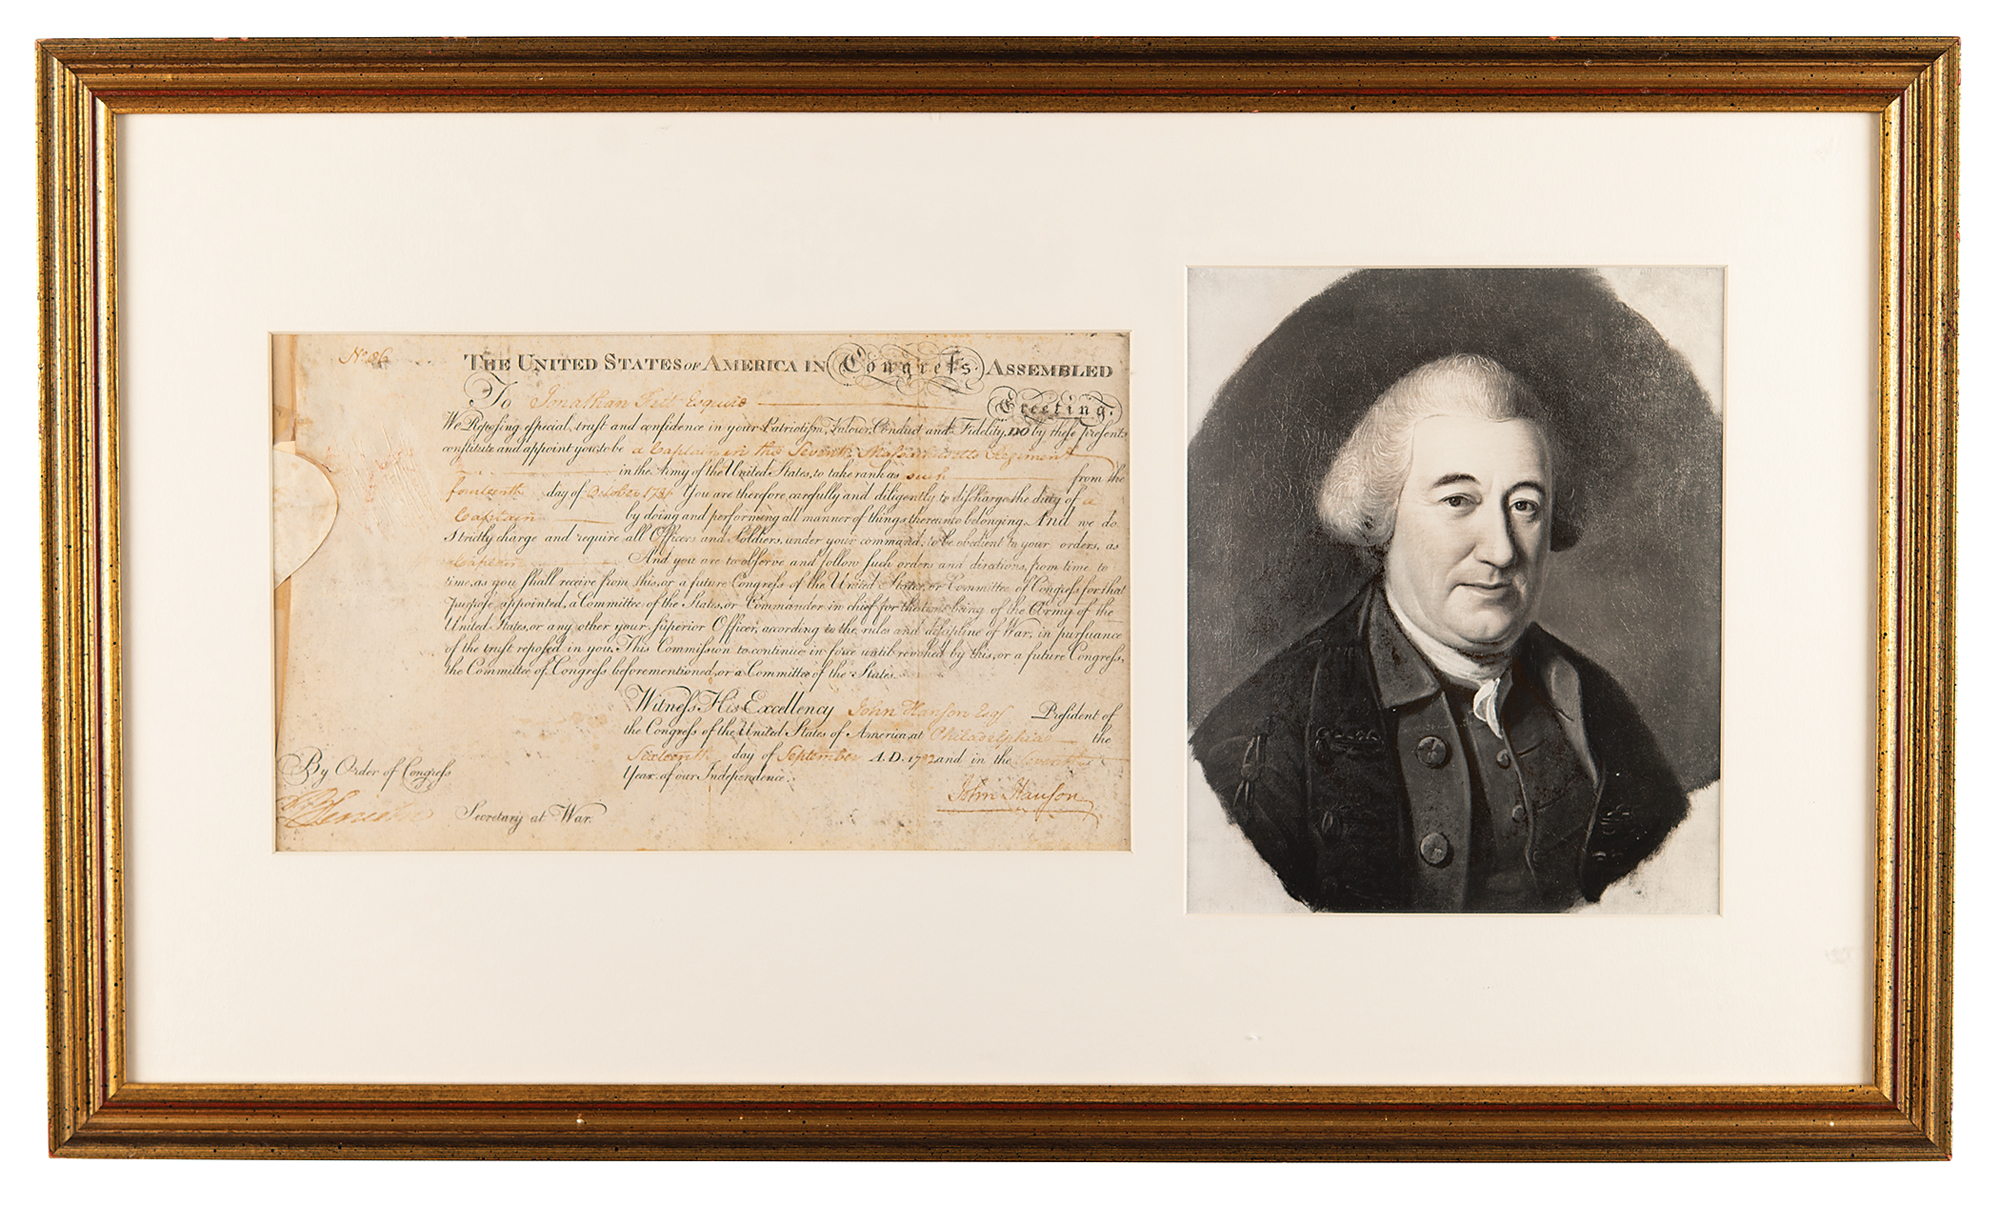 No. 86
THE UNITED STATES OF AMERICA IN Congreſs ASSEMBLED
To Jonathan Felt Esquire
Greeting.
We Repoſing eſpecial truſt and confidence in your Patriotiſm, Valour, Conduct and Fidelity, DO by theſe preſents
conſtitute and appoint you to be a Captain in the Seventh Maſsachusetts Regiment
in the Army of the United States, to take rank as such from the
fourteenth day of October 1781. You are therefore carefully and diligently to diſcharge the duty of a
Captain by doing and performing all manner of things thereunto belonging. And we do
ſtrictly charge and require all Officers and Soldiers, under your command, to be obedient to your orders, as
Captain And you are to obſerve and follow ſuch orders and directions, from time to
time, as you ſhall receive from this, or a future Congreſs of the United States, or Committee of Congreſs for that
purpoſe appointed, a Committee of the States, or Commander in chief for the time being of the Army of the
United States, or any other your ſuperior Officer, according to the rules and diſcipline of War, in purſuance
of the truſt repoſed in you. This Commiſsion to continue in force until revoked by this, or a future Congreſs,
the Committee of Congreſs before mentioned, or a Committee of the States.
Witneſs His Excellency John Hanson Esqr President of
the Congreſs of the United States of America at Philadelphia the
Sixteenth day of September A.D. 1782 and in the Seventh
Year of our Independence.
By Order of Congreſs
John Hanson
B Lincoln Secretary at War.